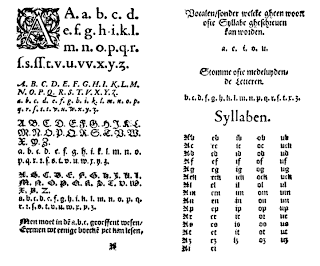 A A. a. b. c. d.
e. f. g. h. i. k. l.
m. n. o. p. q. r.
ſ. s. ſſ. t. v. u. vv. x. y. z.
A. B. C. D. E. F. G. H. I. K. L. M.
N. O. P. Q. R. S. T. V. X. Y. Z.
a. b. c. d. e. f. g. h. i. k. l. m. n. o. p.
q. r. ſ. s. t. v. u. w. x. y. z.
A. B. C. D. E. F. G. H. I. K. L.
M. N. O. P. Q. R. S. T. V. W.
X. Y. Z.
a. b. c. d. e. f. g. h. i. k. l. m. n. o.
p. q. r. ſ. s. t. v. u. w. x. y. z.
A. B. C. D. E. F. G. H. I. K. L.
M. N. O. P. Q. R. S. T. V. W.
X. Y. Z.
a. b. c. d. e. f. g. h. i. k. l. m. n. o. p. q.
r. ſ. s. t. v. u. w. x. y. z.
Men moet in dē a.b.c. gheoffent weſen/
Eermen wel eenige boecke
Vocalen/ſonder welcke gheen woort
ofte Syllabe gheſchreven
kan worden.
a. e. i. o. u.
Stomme ofte medeluyden-
de Letteren.
b. c. d. f. g. h. k. l. m. n. p. q. r. ſ. t. x. z.
Syllaben.
Ab eb ib ob ub
Ac ec ic oc uc
Ad ed id od ud
Af ef if of uf
Ag eg ig og ug
Al el il ol ul
Am em im om um
An en in on un
Ap ep ip op up
Ar er ir or ur
As es is os us
At et it ot ut
Ax ex ix ox ux
Az ez iz oz uz